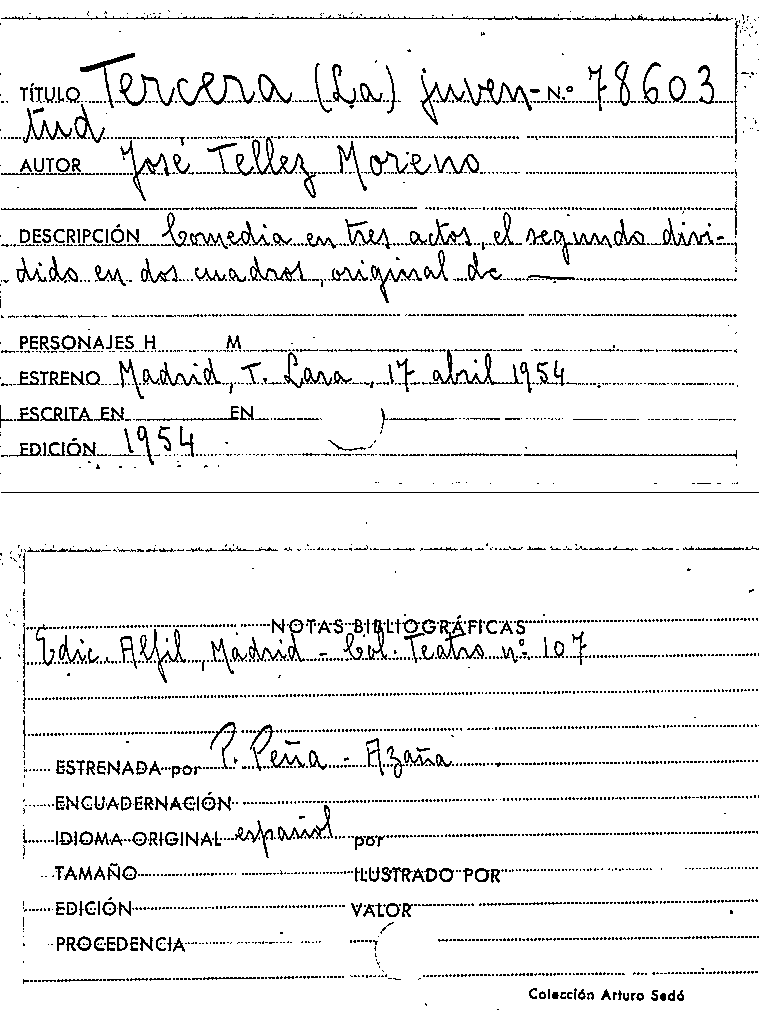 TÍTULO Tercera (La) juven- N.º 78603
tud
AUTOR José Tellez Moreno
DESCRIPCIÓN Comedia en tres actos, el segundo divi-
dido en dos cuadros, original de —
PERSONAJES H M
ESTRENO Madrid, T. Lara, 17 abril 1954
ESCRITA EN EN
EDICIÓN 1954
NOTAS BIBLIOGRÁFICAS
Edic. Alfil, Madrid - Col. Teatro nº 107
ESTRENADA por P. Peña - Azaña
ENCUADERNACIÓN
IDIOMA ORIGINAL español por
TAMAÑO ILUSTRADO POR
EDICIÓN VALOR
PROCEDENCIA
Colección Arturo Sedó